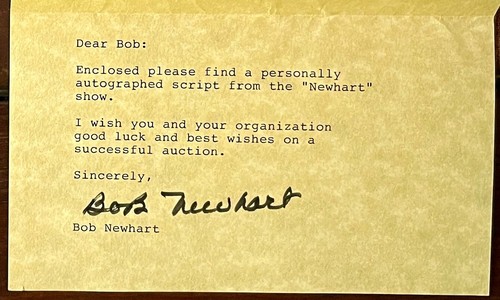 Dear Bob:
Enclosed please find a personally
autographed script from the "Newhart"
show.
I wish you and your organization
good luck and best wishes on a
successful auction.
Sincerely,
Bob Newhart
Bob Newhart